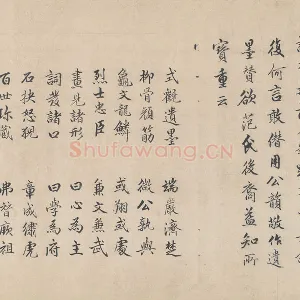 復何言敢僭用公韻敬作遺
墨贊欲范氏後裔益知所
寶重云
式觀遺墨 端嚴濟楚
柳骨顏筋 微公孰與
龜文龍鱗 或翔或處
烈士忠臣 兼文兼武
畫見諸形 曰心為主
詞發諸口 曰學為府
石抉怒猊 章成繡虎
百世珎藏 弗替厥祖
Shufawang.CN